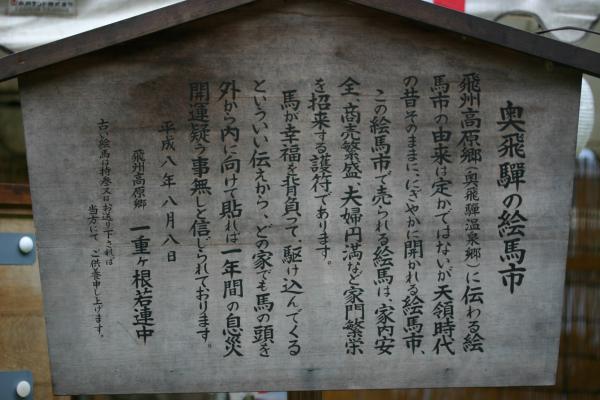 奥飛騨の絵馬市
飛州高原郷(奥飛騨温泉郷)に伝わる絵
馬市の由来は定かではないが天領時代
の昔そのままに、にぎやかに開かれる絵馬市、
この絵馬市で売られる絵馬は、家内安
全、商売繁盛、夫婦円満など家門繁栄
を招来する護符であります。
馬が幸福を背負って、駆け込んでくる
といういい伝えから、どの家でも馬の頭を
外から内に向けて貼れば一年間の息災
開運疑う事無しと信じられております。
平成八年八月八日
飛州高原郷 一重ヶ根若連中
古い絵馬は持参又はお送り下されば
当方にて、ご供養申し上げます。